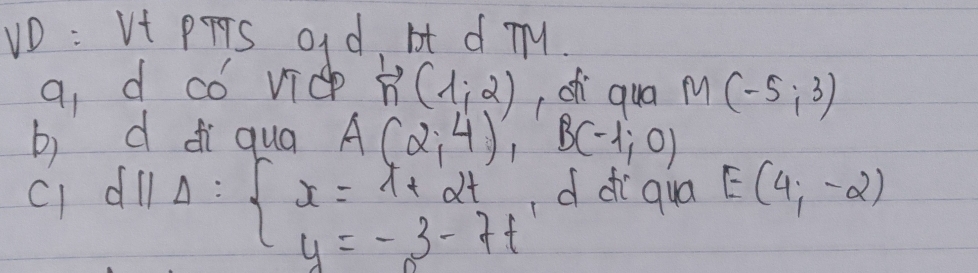 VD : Vt PTTS of d, bt d TM.
a, d có VTCP n⃗(1;2), đi qua M(-5;3)
b) d đi qua A(2;4), B(-1;0)
c) d // Δ : { x = 1 + 2t , d đi qua E(4; -2)
y = - 3 - 7t